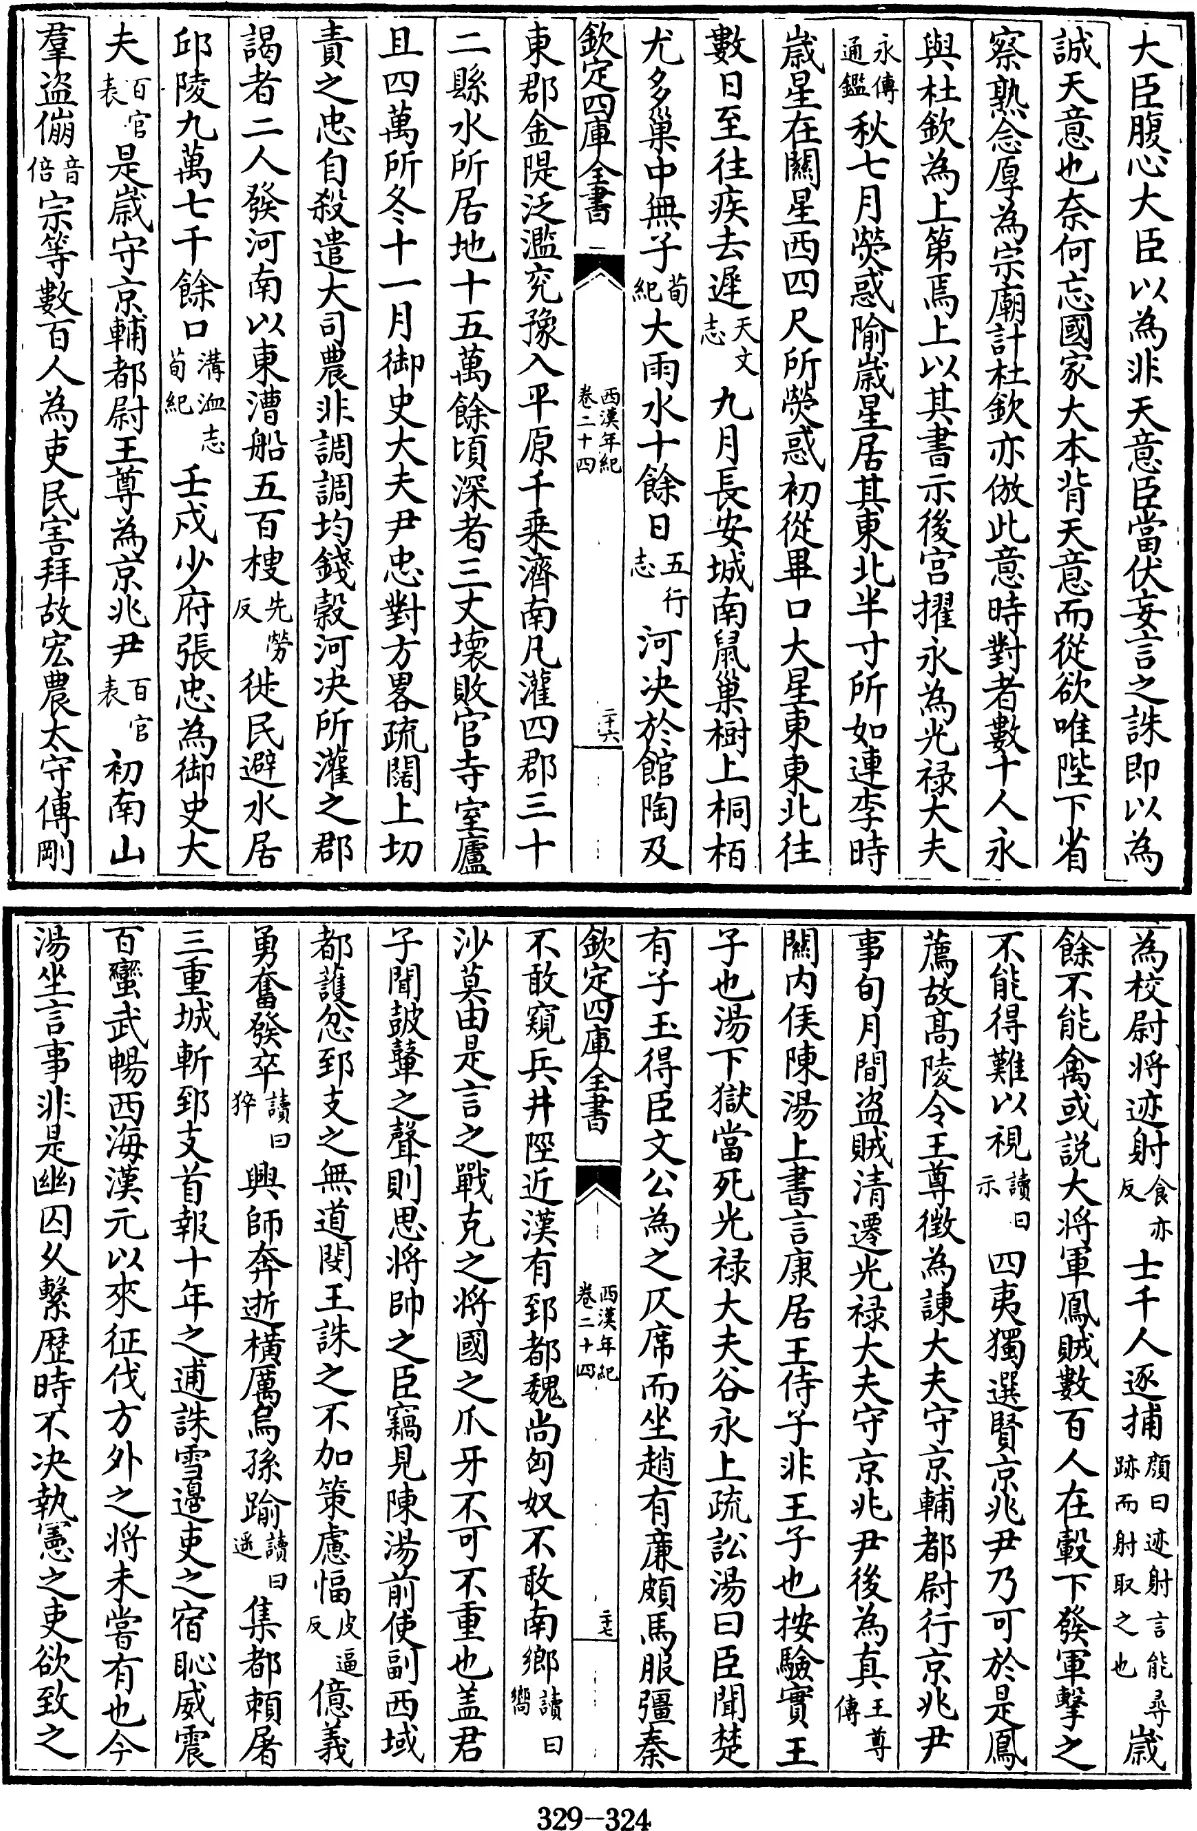 大臣腹心大臣以為非天意臣當伏妄言之誅即以為
誠天意也奈何忘國家大本背天意而從欲唯陛下省
察熟念厚為宗廟計杜欽亦倣此意時對者數十人永
與杜欽為上第焉上以其書示後宮擢永為光祿大夫
永傳通鑑秋七月熒惑隃歲星居其東北半寸所如連李時
歲星在關星西四尺所熒惑初從畢口大星東東北往
數日至往疾去遲天文志九月長安城南鼠巢樹上桐栢
尤多巢中無子荀紀大雨水十餘日五行志河决於館陶及
欽定四庫全書
西漢年紀卷二十四
二十六
東郡金隄泛濫兖豫入平原千乗濟南凡灌四郡三十
二縣水所居地十五萬餘頃深者三丈壊敗官寺室廬
且四萬所冬十一月御史大夫尹忠對方畧疏闊上切
責之忠自殺遣大司農非調調均錢穀河决所灌之郡
謁者二人發河南以東漕船五百㮴先勞反徙民避水居
邱陵九萬七千餘口溝洫志荀紀壬戍少府張忠為御史大
夫百官表是歲守京輔都尉王尊為京兆尹百官表初南山
羣盗傰音倍宗等數百人為吏民害拜故宏農太守傅剛
為校尉將迹射食亦反士千人逐捕顔曰迹射言能尋跡而射取之也歲
餘不能禽或說大將軍鳳賊數百人在轂下發軍擊之
不能得難以視讀曰示四夷獨選賢京兆尹乃可於是鳳
薦故高陵令王尊徴為諫大夫守京輔都尉行京兆尹
事旬月間盗賊清遷光祿大夫守京兆尹後為真王尊傳
關内侯陳湯上書言康居王侍子非王子也按驗實王
子也湯下獄當死光祿大夫谷永上疏訟湯曰臣聞楚
有子玉得臣文公為之仄席而坐趙有亷頗馬服彊秦
欽定四庫全書
西漢年紀卷二十四
二十七
不敢窺兵井陘近漢有郅都魏尚匈奴不敢南鄉讀曰嚮
沙莫由是言之戰克之將國之爪牙不可不重也盖君
子聞鼓鼙之聲則思將帥之臣竊見陳湯前使副西域
都護忿郅支之無道閔王誅之不加策慮愊皮逼反億義
勇奮發卒讀曰猝興師奔逝橫厲烏孫踰讀曰遥集都賴屠
三重城斬郅支首報十年之逋誅雪邊吏之宿恥威震
百蠻武暢西海漢元以來征伐方外之將未嘗有也今
湯坐言事非是幽囚乆繫歴時不决執憲之吏欲致之
329-324